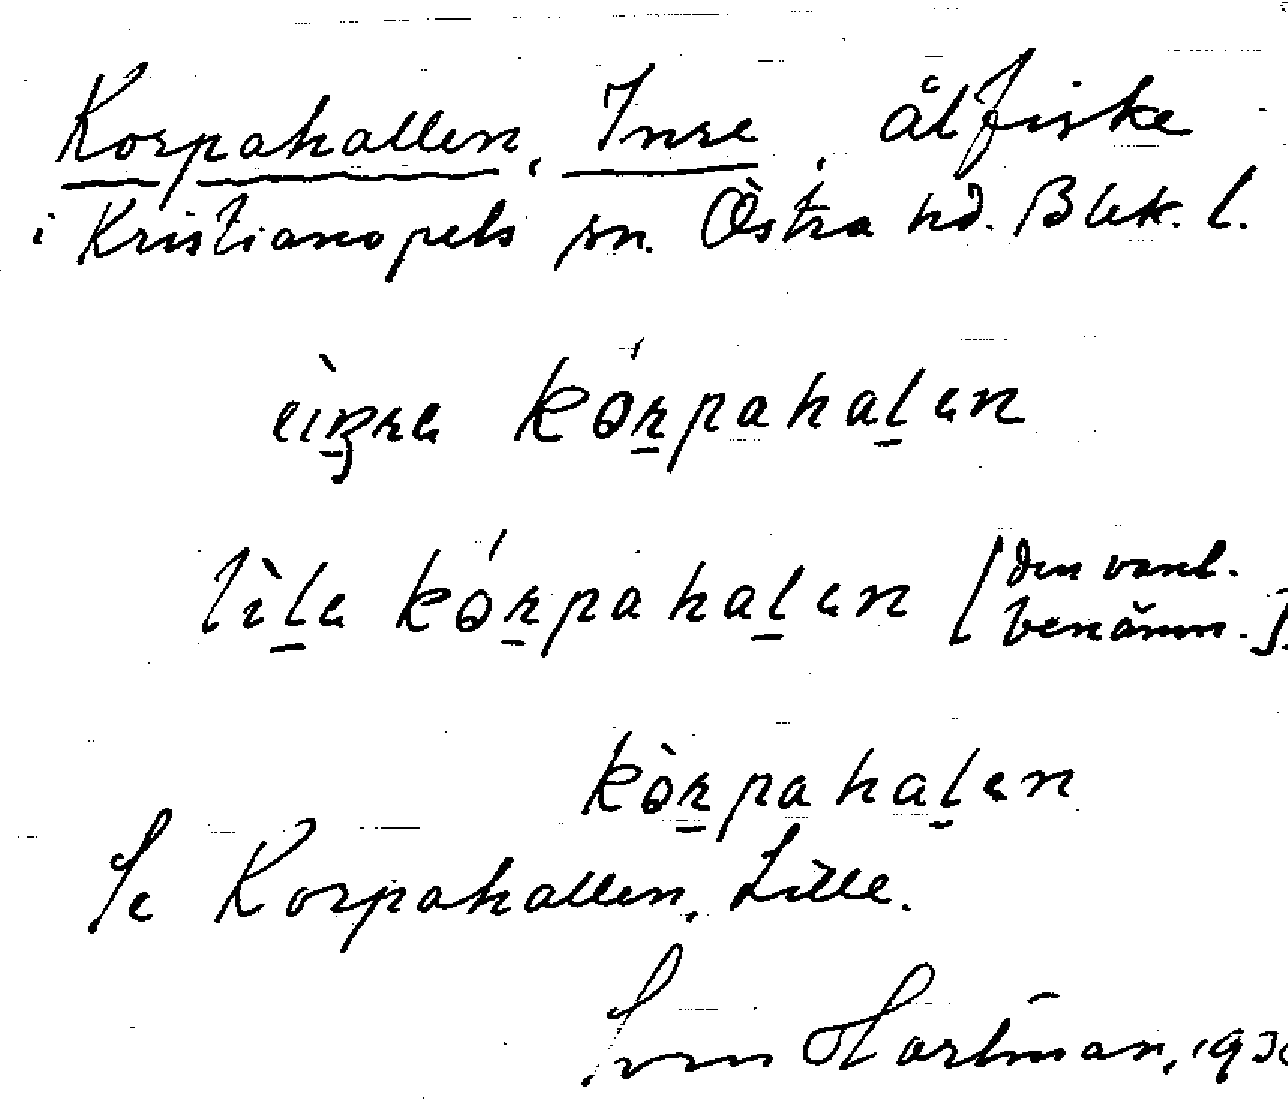 Korpahallen, Inre, ålfiske
i Kristianopels sn. Östra hd. Blek. l.
kórpahalen
lìle kórpahalen [den vanl.
benämn.].
kòrpahalen
Se Korpahallen, Lille.
Sven Hartman, 193